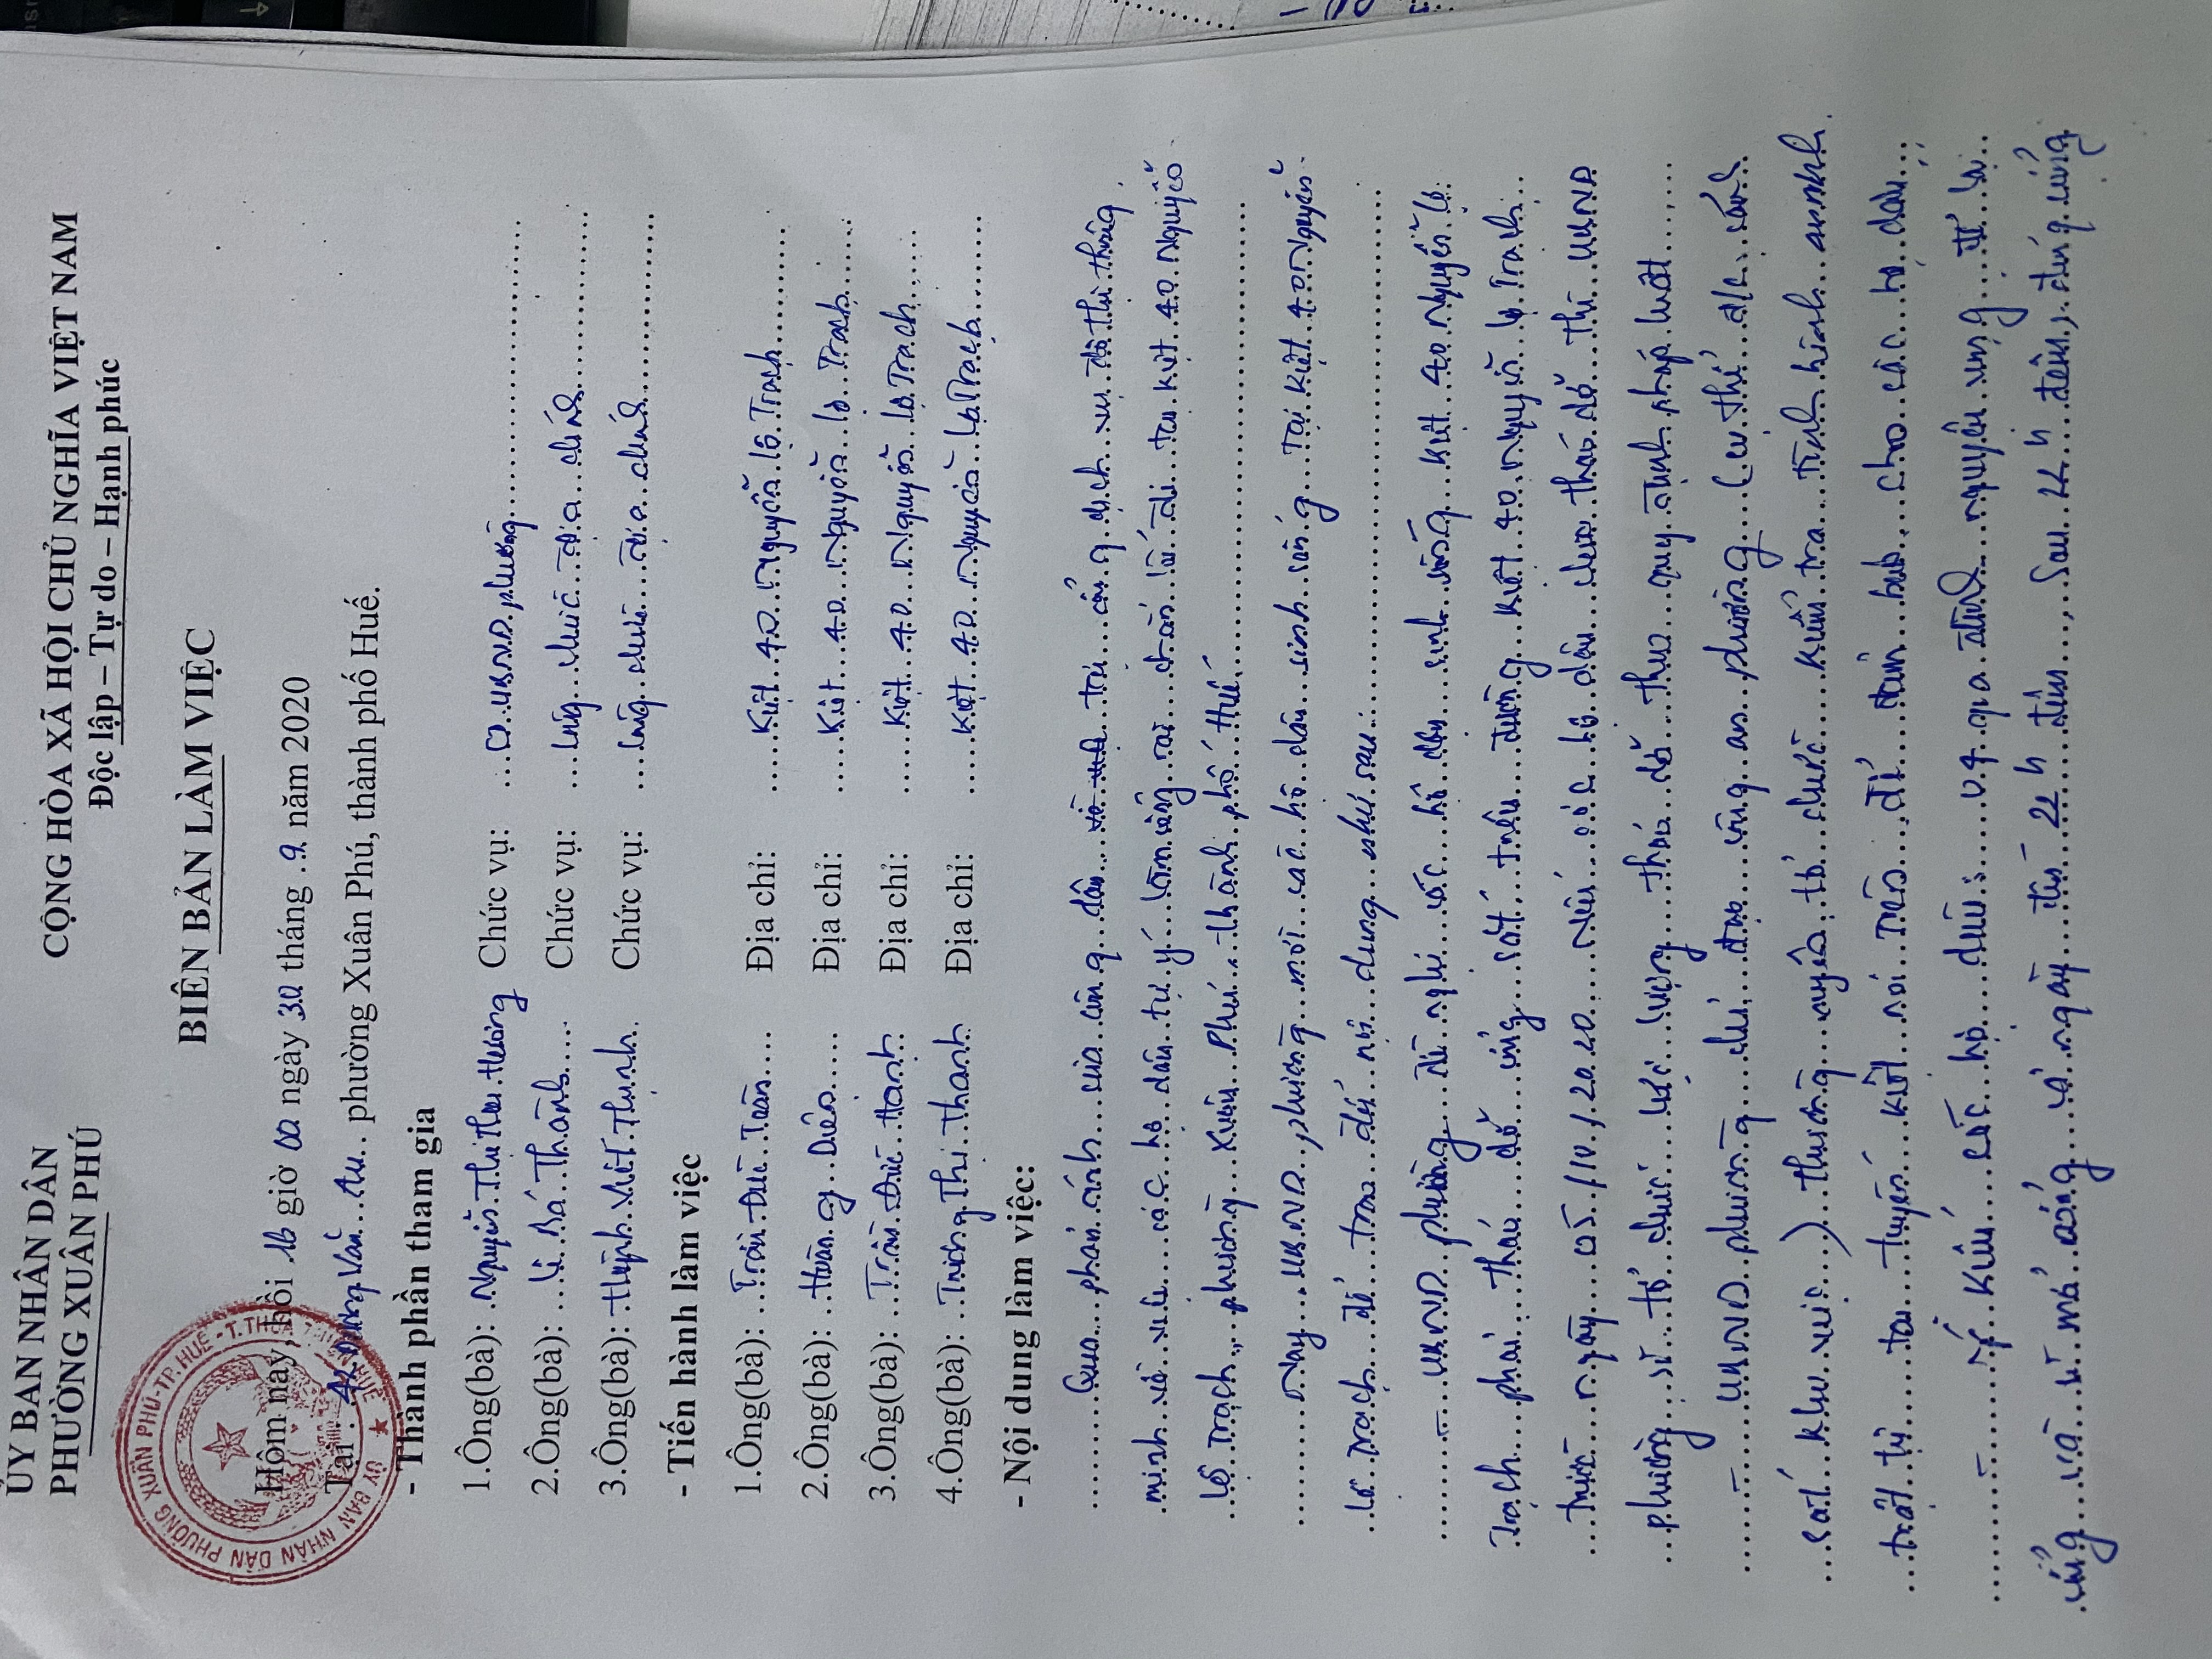 ỦY BAN NHÂN DÂN
PHƯỜNG XUÂN PHÚ
CỘNG HÒA XÃ HỘI CHỦ NGHĨA VIỆT NAM
Độc lập – Tự do – Hạnh phúc
BIÊN BẢN LÀM VIỆC
Hôm nay, hồi 16 giờ 00 ngày 30 tháng 9 năm 2020
Tại: 42 Dương Văn An phường Xuân Phú, thành phố Huế.
- Thành phần tham gia
1.Ông(bà): Nguyễn Thị Thu Hương Chức vụ: UBND phường
2.Ông(bà): Lê Bá Thành Chức vụ: Công chức địa chính
3.Ông(bà): Huỳnh Viết Thịnh Chức vụ: Công chức địa chính
- Tiến hành làm việc
1.Ông(bà): Trần Đức Toàn Địa chỉ: Kiệt 40 Nguyễn Lộ Trạch
2.Ông(bà): Hoàng Diên Địa chỉ: Kiệt 40 Nguyễn Lộ Trạch
3.Ông(bà): Trần Đức Hạnh Địa chỉ: Kiệt 40 Nguyễn Lộ Trạch
4.Ông(bà): Trương Thị Thanh Địa chỉ: Kiệt 40 Nguyễn Lộ Trạch
- Nội dung làm việc:
Qua phản ánh của công dân trên cổng dịch vụ đô thị thông
minh về việc các hộ dân tự ý làm cổng rào chắn lối đi tại kiệt 40 Nguyễn
Lộ Trạch, phường Xuân Phú, thành phố Huế.
Nay UBND phường mời các hộ dân sinh sống tại kiệt 40 Nguyễn
Lộ Trạch để trao đổi nội dung như sau:
- UBND phường đề nghị các hộ dân sinh sống kiệt 40 Nguyễn Lộ
Trạch phải tháo dỡ cổng sắt trên đường kiệt 40 Nguyễn Lộ Trạch
trước ngày 05/10/2020. Nếu các hộ dân chưa tháo dỡ thì UBND
phường sẽ tổ chức lực lượng tháo dỡ theo quy định pháp luật
- UBND phường chỉ đạo công an phường (cụ thể đ/c cảnh
sát khu vực) thường xuyên tổ chức kiểm tra tình hình an ninh
trật tự tại tuyến kiệt nói trên để đảm bảo cho các hộ dân
- Ý kiến các hộ dân: 04 gia đình nguyện vọng để lại
cổng và sẽ mở cổng cả ngày đến 22h đêm, sau 22h đêm đóng cổng
ỦY BAN NHÂN DÂN PHƯỜNG XUÂN PHÚ-TP.HUẾ-T.THỪA THIÊN HUẾ